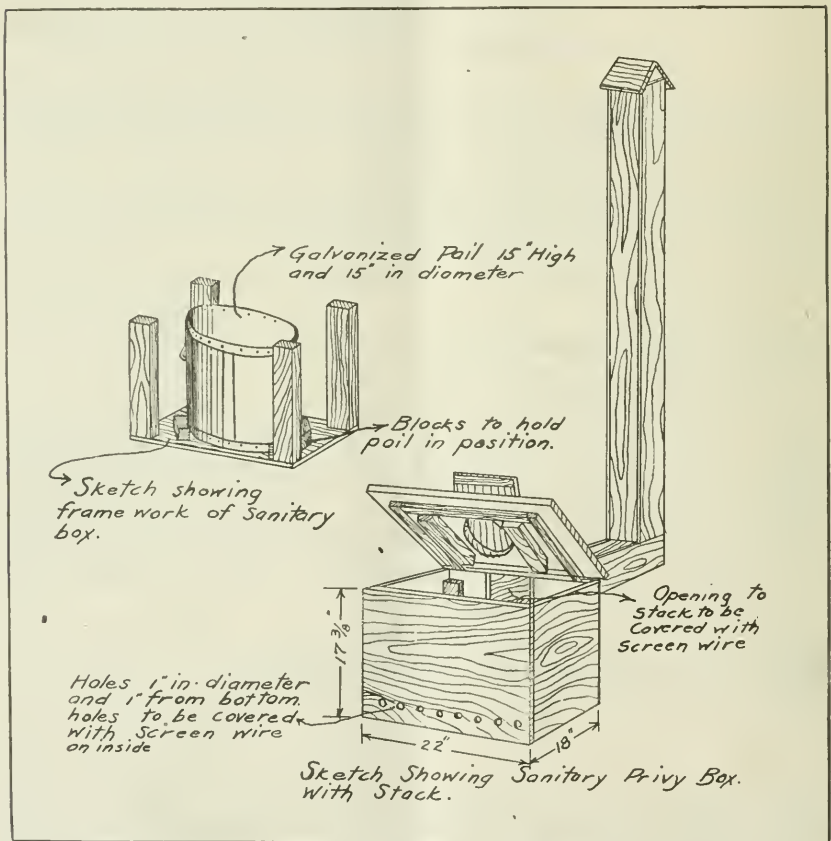 Galvanized Pail 15" High
and 15" in diameter
Blocks to hold
pail in position.
Sketch showing
frame work of Sanitary
box.
Opening to
Stack to be
Covered with
Screen wire
17 3/8"
Holes 1" in diameter
and 1" from bottom.
holes to be covered
with Screen wire
on inside
22"
18"
Sketch Showing Sanitary Privy Box.
With Stack.